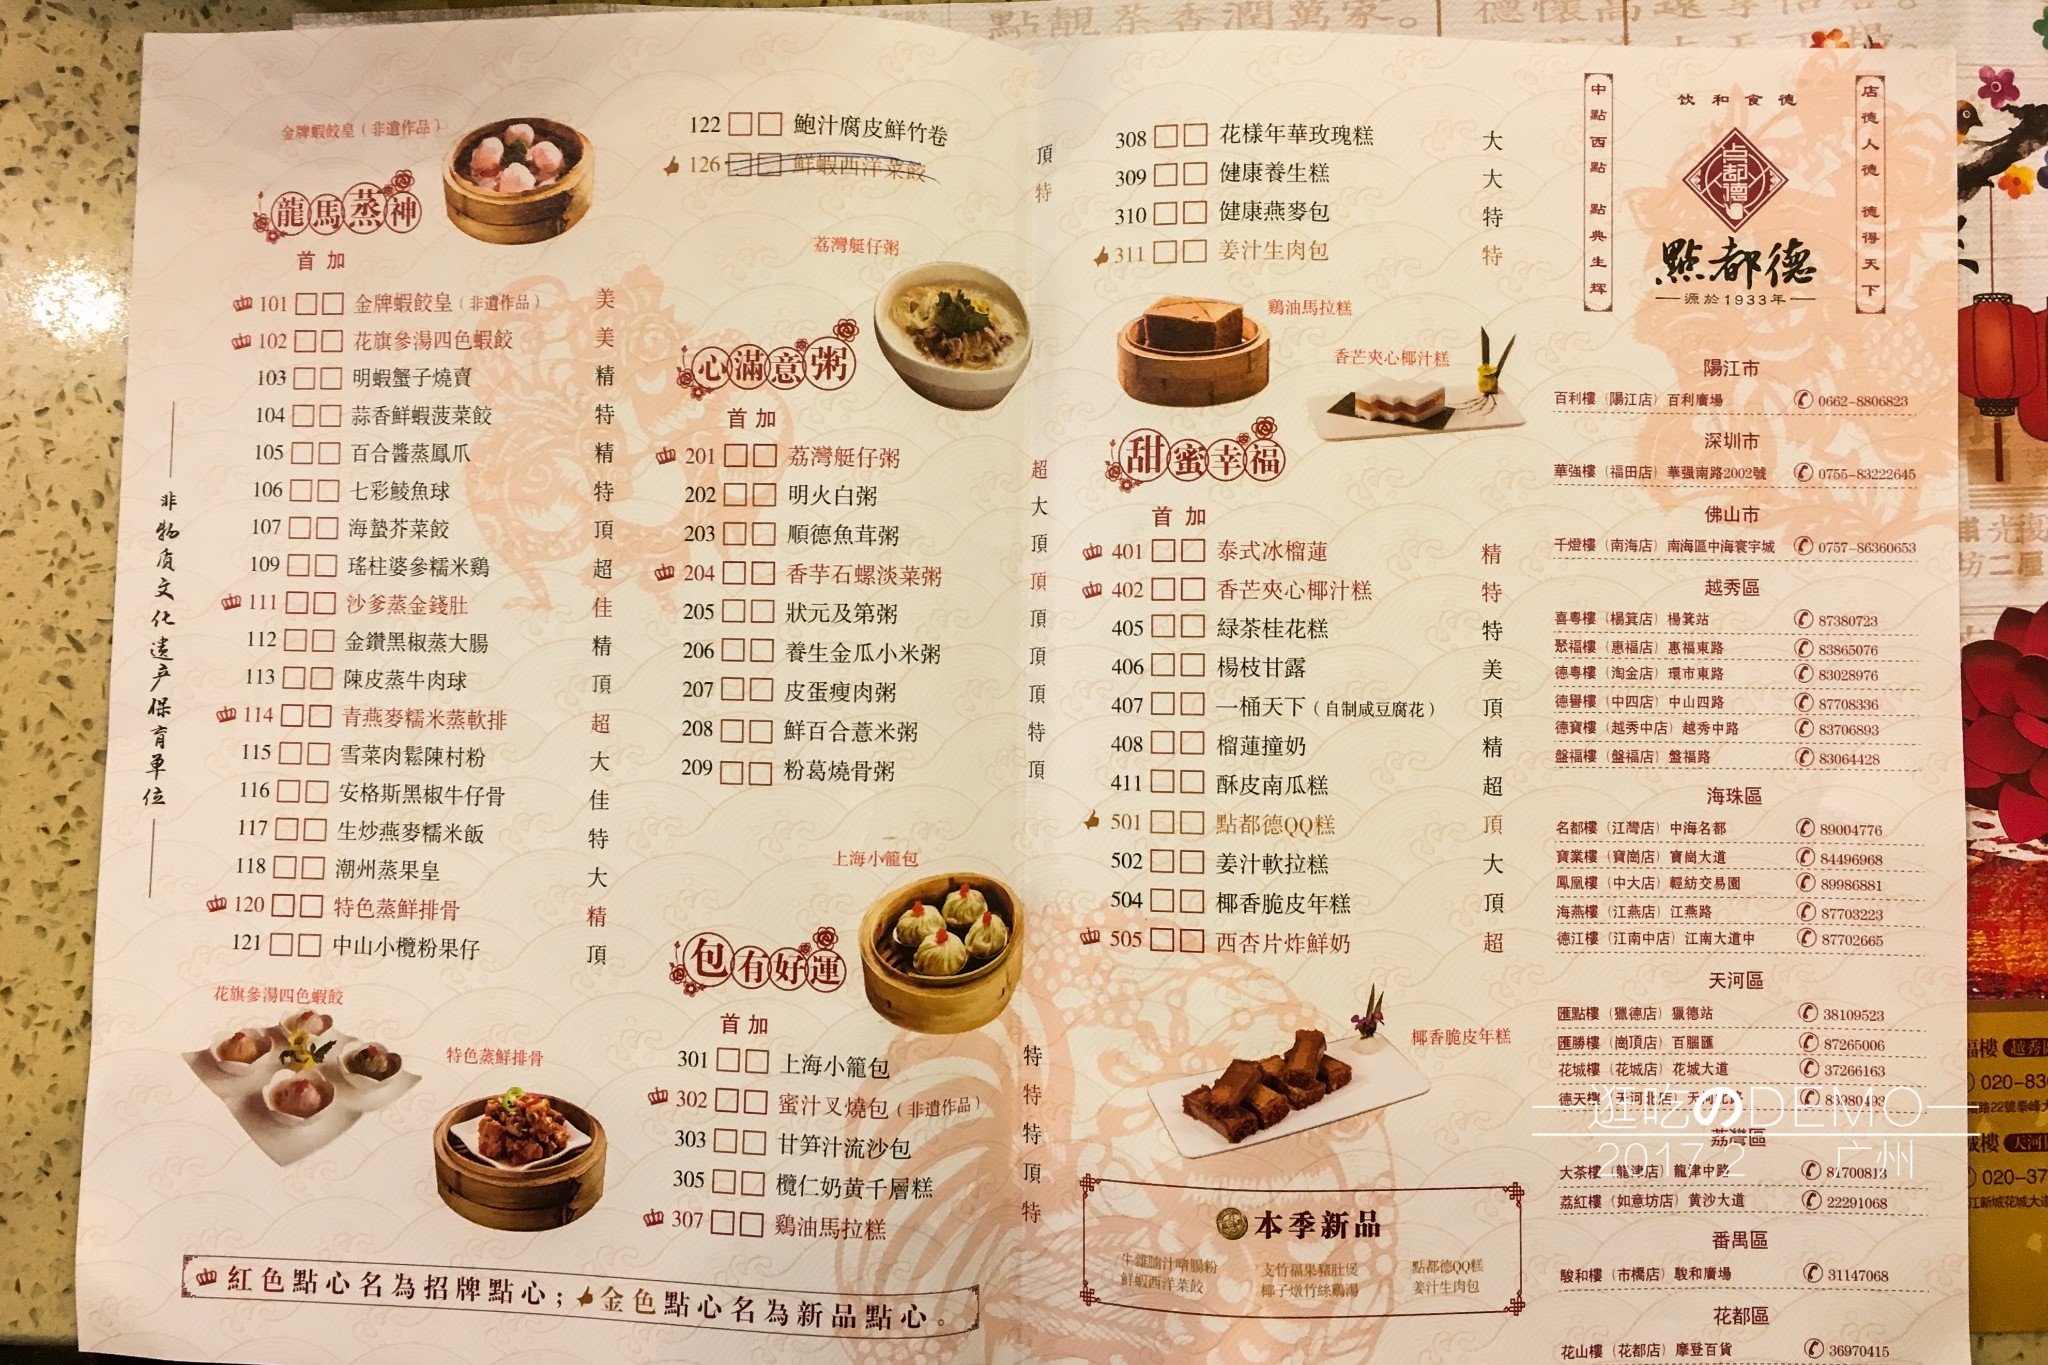 金牌蝦餃皇（非遺作品）
龍馬蒸神
首 加
101 金牌蝦餃皇（非遺作品） 美
102 花旗參湯四色蝦餃 美
103 明蝦蟹子燒賣 精
104 蒜香鮮蝦菠菜餃 特
105 百合醬蒸鳳爪 精
106 七彩鯪魚球 特
107 海蟄芥菜餃 頂
109 瑤柱婆參糯米鷄 超
111 沙爹蒸金錢肚 佳
112 金鑽黑椒蒸大腸 精
113 陳皮蒸牛肉球 頂
114 青燕麥糯米蒸軟排 超
115 雪菜肉鬆陳村粉 大
116 安格斯黑椒牛仔骨 佳
117 生炒燕麥糯米飯 特
118 潮州蒸果皇 大
120 特色蒸鮮排骨 精
121 中山小欖粉果仔 頂
花旗參湯四色蝦餃
特色蒸鮮排骨
非物质文化遗产保育单位
紅色點心名為招牌點心；金色點心名為新品點心。
122 鮑汁腐皮鮮竹卷 頂
126 鮮蝦西洋菜餃 特
荔灣艇仔粥
心滿意粥
首 加
201 荔灣艇仔粥 超
202 明火白粥 大
203 順德魚茸粥 頂
204 香芋石螺淡菜粥 頂
205 狀元及第粥 頂
206 養生金瓜小米粥 頂
207 皮蛋瘦肉粥 頂
208 鮮百合薏米粥 特
209 粉葛燒骨粥 頂
上海小籠包
包有好運
首 加
301 上海小籠包 特
302 蜜汁叉燒包（非遺作品） 特
303 甘笋汁流沙包 特
305 欖仁奶黃千層糕 頂
307 鷄油馬拉糕 特
308 花樣年華玫瑰糕 大
309 健康養生糕 大
310 健康燕麥包 特
311 姜汁生肉包 特
鷄油馬拉糕
香芒夾心椰汁糕
甜蜜幸福
首 加
401 泰式冰榴蓮 精
402 香芒夾心椰汁糕 特
405 緑茶桂花糕 特
406 楊枝甘露 美
407 一桶天下（自制咸豆腐花） 頂
408 榴蓮撞奶 精
411 酥皮南瓜糕 超
501 點都德QQ糕 頂
502 姜汁軟拉糕 大
504 椰香脆皮年糕 頂
505 西杏片炸鮮奶 超
椰香脆皮年糕
本季新品
牛雜腩汁啫腸粉 支竹福果豬肚煲 點都德QQ糕
鮮蝦西洋菜餃 椰子燉竹絲鷄湯 姜汁生肉包
中點西點 點典生辉
饮和食德
店德人德 德得天下
点都德
點都德
源於1933年
陽江市
百利樓（陽江店）百利廣場 0662-8806823
深圳市
華強樓（福田店）華强南路2002號 0755-83222645
佛山市
千燈樓（南海店）南海區中海寰宇城 0757-86360653
越秀區
喜粵樓（楊箕店）楊箕站 87380723
聚福樓（惠福店）惠福東路 83865076
德粵樓（淘金店）環市東路 83028976
德譽樓（中四店）中山四路 87708336
德寶樓（越秀中店）越秀中路 83706893
盤福樓（盤福店）盤福路 83064428
海珠區
名都樓（江灣店）中海名都 89004776
寶業樓（寶崗店）寶崗大道 84496968
鳳凰樓（中大店）輕紡交易園 89986881
海燕樓（江燕店）江燕路 87703223
德江樓（江南中店）江南大道中 87702665
天河區
匯點樓（獵德店）獵德站 38109523
匯勝樓（崗頂店）百腦匯 87265006
花城樓（花城店）花城大道 37266163
德天樓（天河北店）天河北路 83980493
荔灣區
大茶樓（龍津店）龍津中路 81700813
荔紅樓（如意坊店）黄沙大道 22291068
番禺區
駿和樓（市橋店）駿和廣場 31147068
花都區
花山樓（花都店）摩登百貨 36970415
逛吃のDEMO
2017.2 广州
點靚茶香潤萬家。
020-37